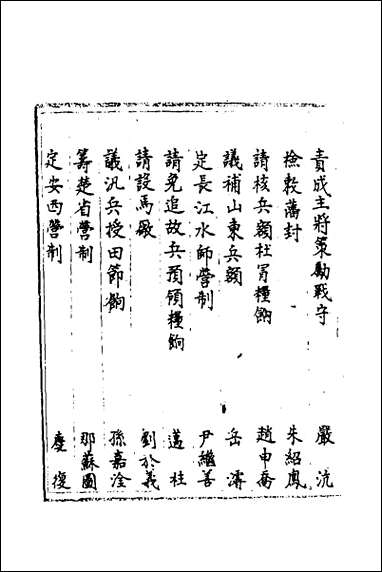 責成主將策勵戰守 嚴沆
檢殼藩封 朱紹鳳
請核兵額杜冐糧餉 趙申喬
議補山東兵額 岳濬
定長江水師營制 尹繼善
請免追故兵預領糧餉 邁柱
請設馬廠 劉於義
議汛兵授田節餉 孫嘉淦
籌楚省營制 那蘇圖
定安西營制 慶復